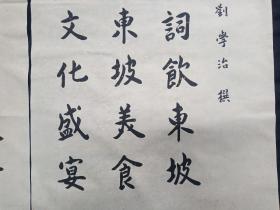 劉學治 撰
詞飲東坡
東坡美食
文化盛宴